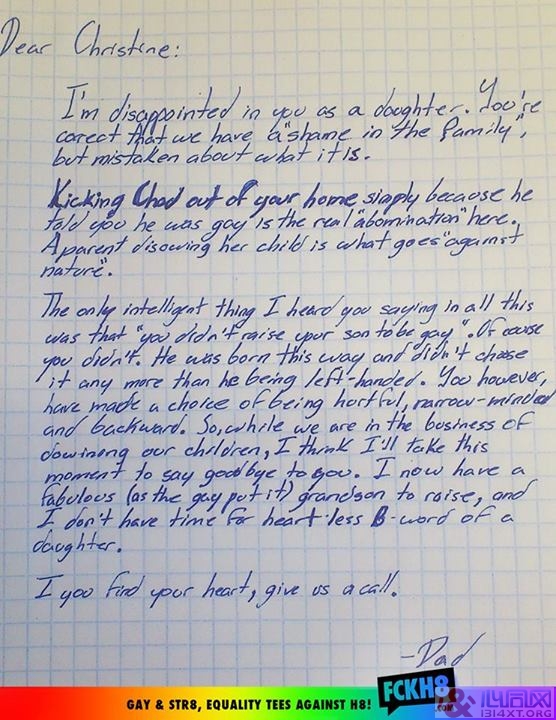 Dear Christine:
I'm disappointed in you as a daughter. You're
correct that we have a "shame in the family",
but mistaken about what it is.
Kicking Chad out of your home simply because he
told you he was gay is the real "abomination" here.
A parent disowing her child is what goes "against
nature".
The only intelligent thing I heard you saying in all this
was that "you didn't raise your son to be gay". Of couse
you didn't. He was born this way and didn't choose
it any more than he being left-handed. You however,
have made a choice of being hurtful, narrow-minded
and backward. So, while we are in the business of
dowinong our children, I think I'll take this
moment to say goodbye to you. I now have a
fabulous (as the gay put it) grandson to raise, and
I don't have time for heart-less B-word of a
daughter.
I you find your heart, give us a call.
-Dad
GAY & STR8, EQUALITY TEES AGAINST H8!
FCKH8
.COM
心同网
1314XT.ORG